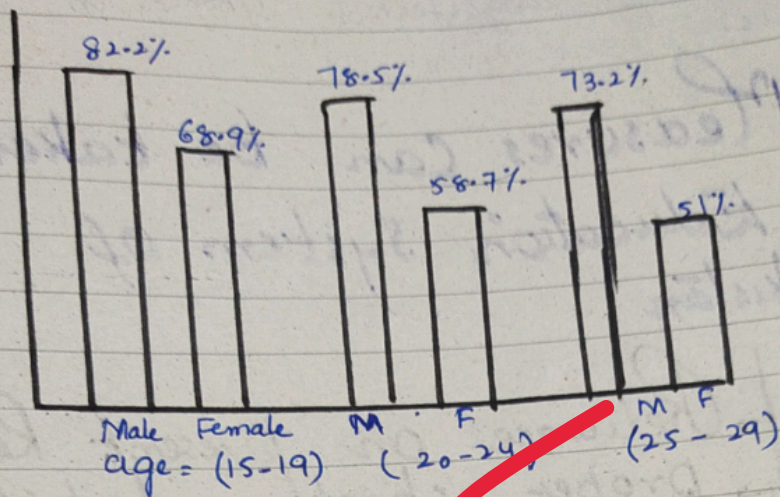 82.2%
68.9%
78.5%
58.7%
73.2%
51%
Male Female M F M F
age = (15-19) (20-24) (25-29)